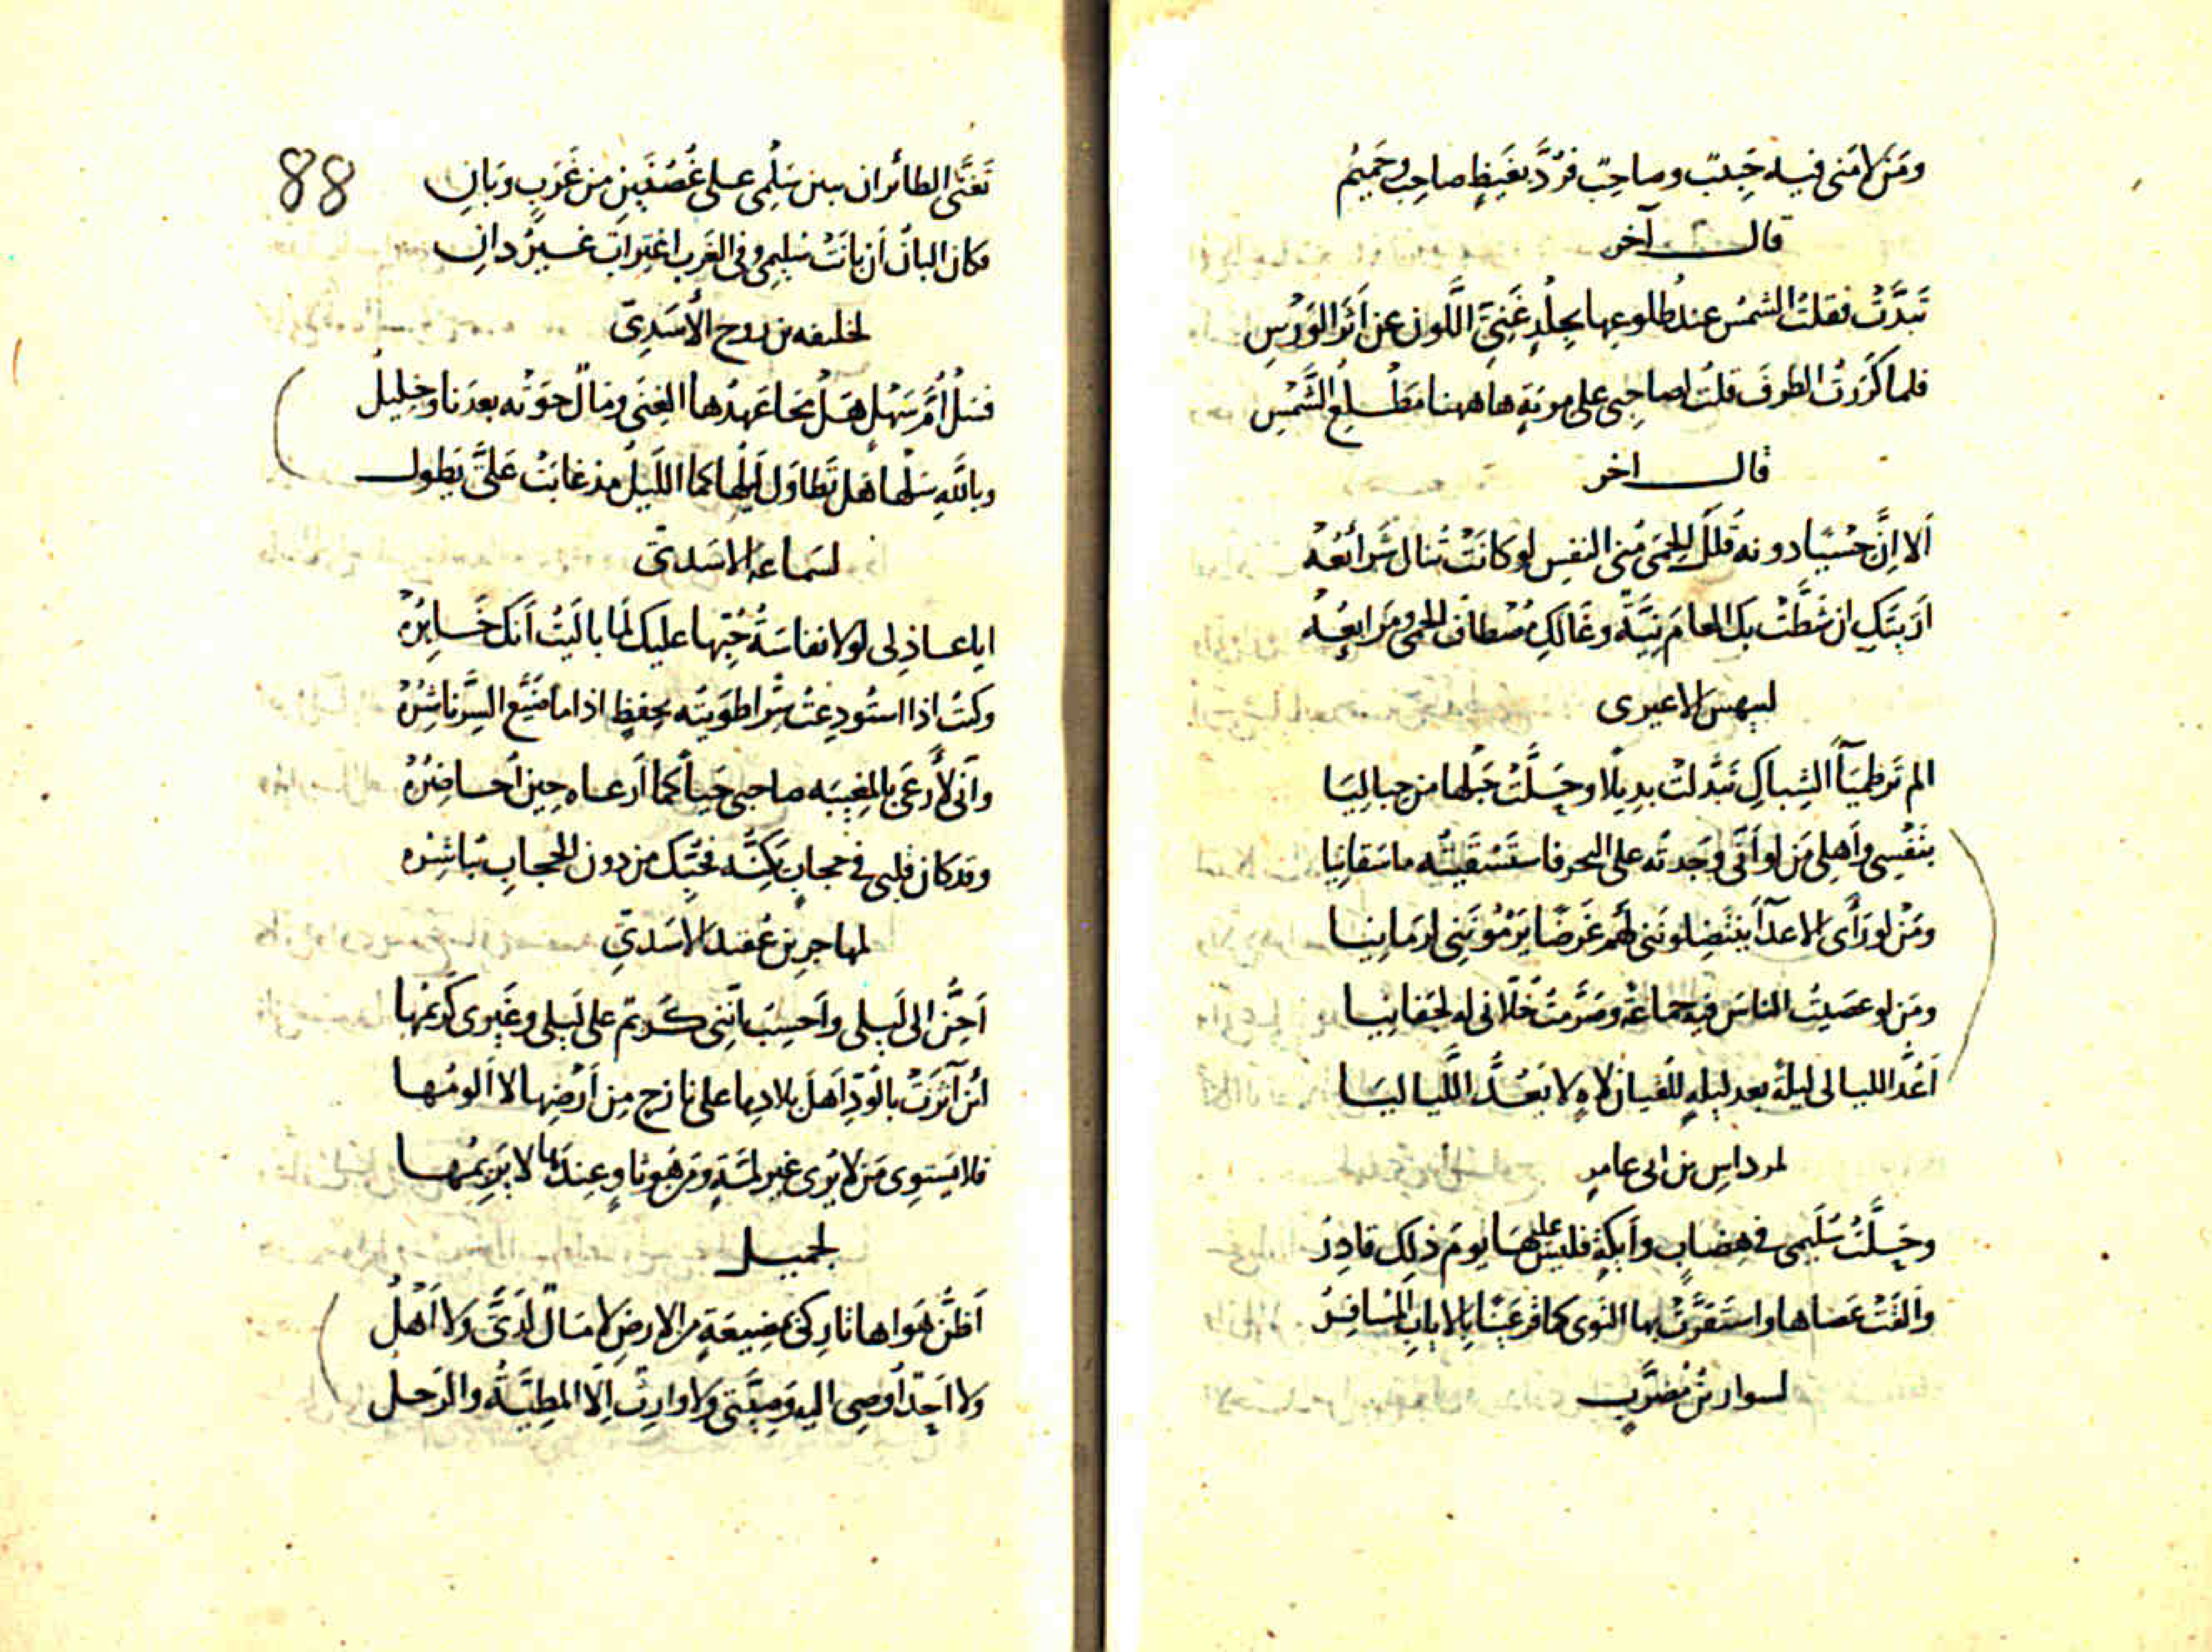 ومَن لامَنى فيه حَبِيبٌ وصاحِبٌ فرُدَّ بغَيظٍ صاحِبٌ وحَميمُ
قال آخر
تَبَدَّتْ فقلتُ الشمسُ عند طلوعِها بجِلدٍ غَنِيّ اللَّونِ عن أَثَرِ الوَرْسِ
فلما كرَرتُ الطرفَ قلتُ لصاحبى على مريَةٍ ها ههنا مَطْلِعُ الشَّمْسِ
قال اخر
أَلا إنَّ حِسْيًا دونه قُلَلُ الحِمَى مُنى النفسِ لو كانَتْ تُنال شَرائعُهْ
أرَيتَكِ ان شَطَّتْ بك العامَ نِيَّةٌ وغَالَكِ مُصْطافُ الحِمى ومَرابعُهْ
لبيهس الاعيرى
الم تَر ظميَآَ الشِباكِ تَبَدَّلتْ بدِيلًا وحَلَّتْ حَبْلها من حباليَا
بنَفْسِى وأَهلِى مَن لو أنَّى وجَدتُه على البحر فاستَسْقَيتُه ما سَقانِيا
ومَنْ لو رَأَى الاعدآءَ ينتَضِلونَنى لهُم غَرَضًا يَرْمُونَنى لرَمانِيا
ومَن لو عصَيتُ الناسَ فيه جماعةً وصَرَّمتُ خلّانى له لجَفانِيا
أعُدُّ الليالى ليلةً بعد ليلةٍ للُقيانِ لاهٍ لا يَعُدُّ اللَّياليَا
لمرداسِ بن ابى عامرٍ
وحَلَّتْ سُلَيمى فى هِضابٍ وأيكةٍ فليسَ عليها يومَ ذلِك قادِرُ
وأَلقَتْ عصاها واستَقَرَّتْ بها النَوى كما قرَّ عَينًا بالايابِ المُسافِرُ
لسوار بن مُضَرَّبٍ
88
تَغَنَّى الطائران ببين سَلْمى على غُصُنَينِ من غَرَبٍ وبَانِ
فكان البانُ أن بانَتْ سُليمى وفى الغَرَب اغتِرابٌ غيرُ دانِ
لخليفه بن روح الأَسَدِىّ
فسَلْ أُمَّ سَهْلٍ هَلْ مَحا عَهدَها الغِنَى ومَالٌ حوَتْه بعدَنا وخليلُ
وباللَّهِ سَلْها هَل تَطاوَلَ لَيلُها كما الليلُ مذ غابَتْ عَلىَّ يَطول
لسَماعه الاسَدىّ
ايا عاذِلى لولا نفاسَةُ حُبِّها عليك لَما بالَيتُ أَنك خَابِرُهْ
وكنتُ اذا استُودِعتُ سِرًّا طوَيتُه بحِفظٍ اذا ما ضَيَّع السِرَّ ناشِرُهْ
وأنّى لأَرعَى بالمَغِيبَه صاحبى حَياءً كما أرعاه حِينَ أُحاضِرُهْ
وقد كان قلبى فى حجابٍ يَكِنُّه فحُبُّك من دون الحجابِ يُباشِرُه
لمهاجر بن عُقبه الاسَدىّ
أَحِنُّ الى ليلى وأَحسِبُ أنّنى كَريمٌ على ليلى وغَيرى كَريمُها
لئن آثَرَتْ بالوُدّ أهلَ بلادِها على نازحٍ من أَرضِها لا أَلومُها
فلا يَستوِى مَن لا يُرى غيرَ لمَّةٍ ومَن هُو ثاوٍ عندَها لا يَرِيمُها
لجميل
أَظُنُّ هَواها تارِكى بمَضِيعَةٍ من الارضِ لا مَالٌ لَدَىَّ ولا أَهْلُ
ولا أحَدٌ أُوصِى اليه وَصِيَّتى ولا وارِثٌ إلّا المَطِيَّةُ والرَحلُ